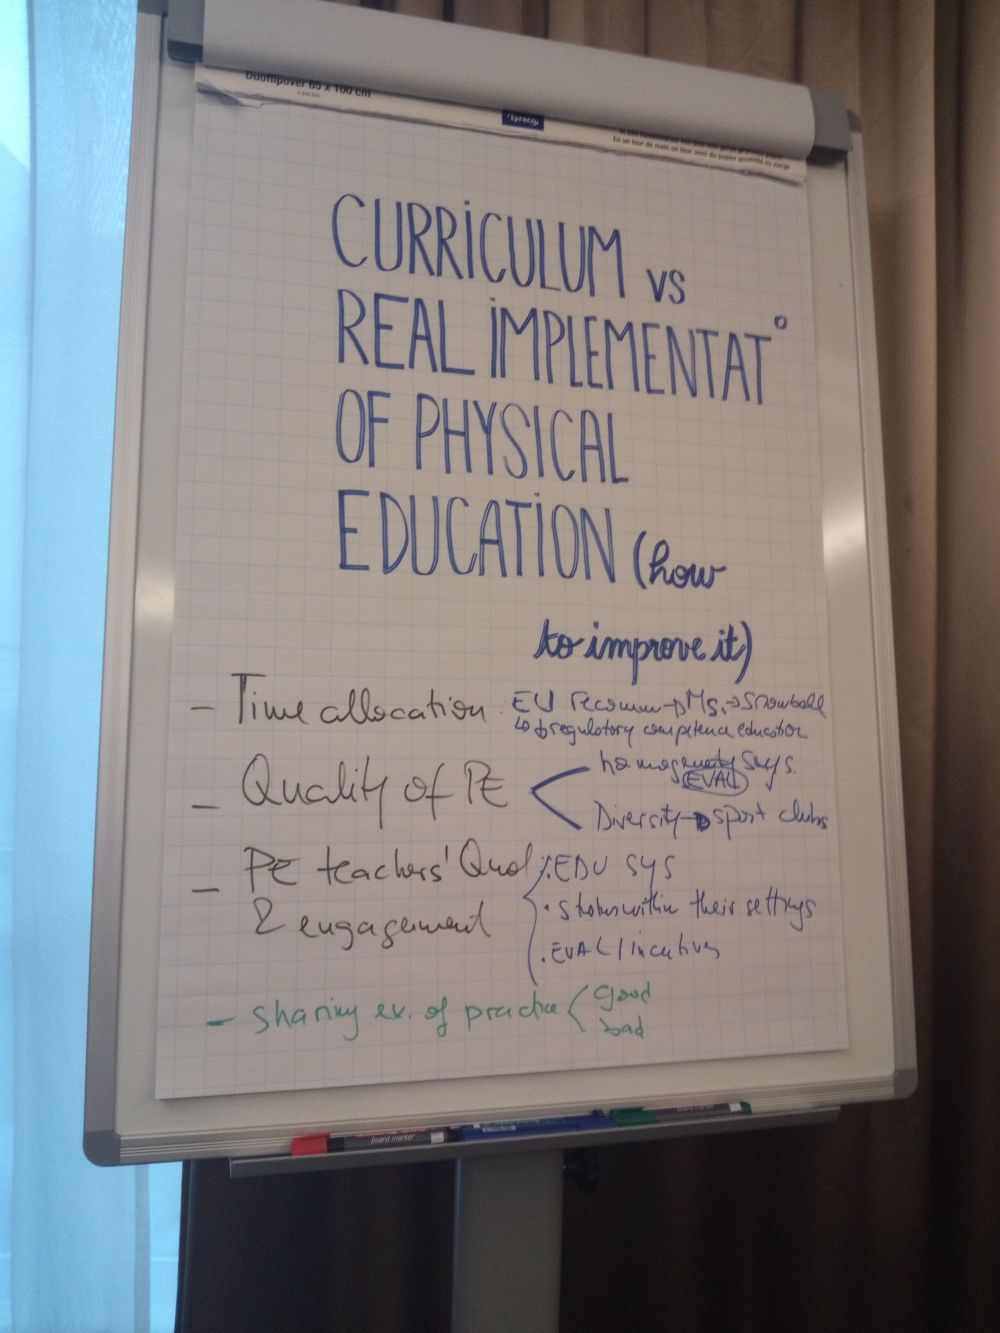 Duoflipover 65 x 100 cm
Lyreco
En un tour de main un bloc avec du papier quadrillé ou vierge
CURRICULUM vs
REAL IMPLEMENTAT°
OF PHYSICAL
EDUCATION (how
to improve it)
- Time allocation . EU recomm → Ms. → Snowball
↳ regulatory competence education
- Quality of PE < homogeneity sys.
EVAL
Diversity → sport clubs
- PE teachers' Qual . EDU SYS
& engagement . within their settings
. EVAL / incentives
- sharing ex. of practice < good
bad
board marker
board marker